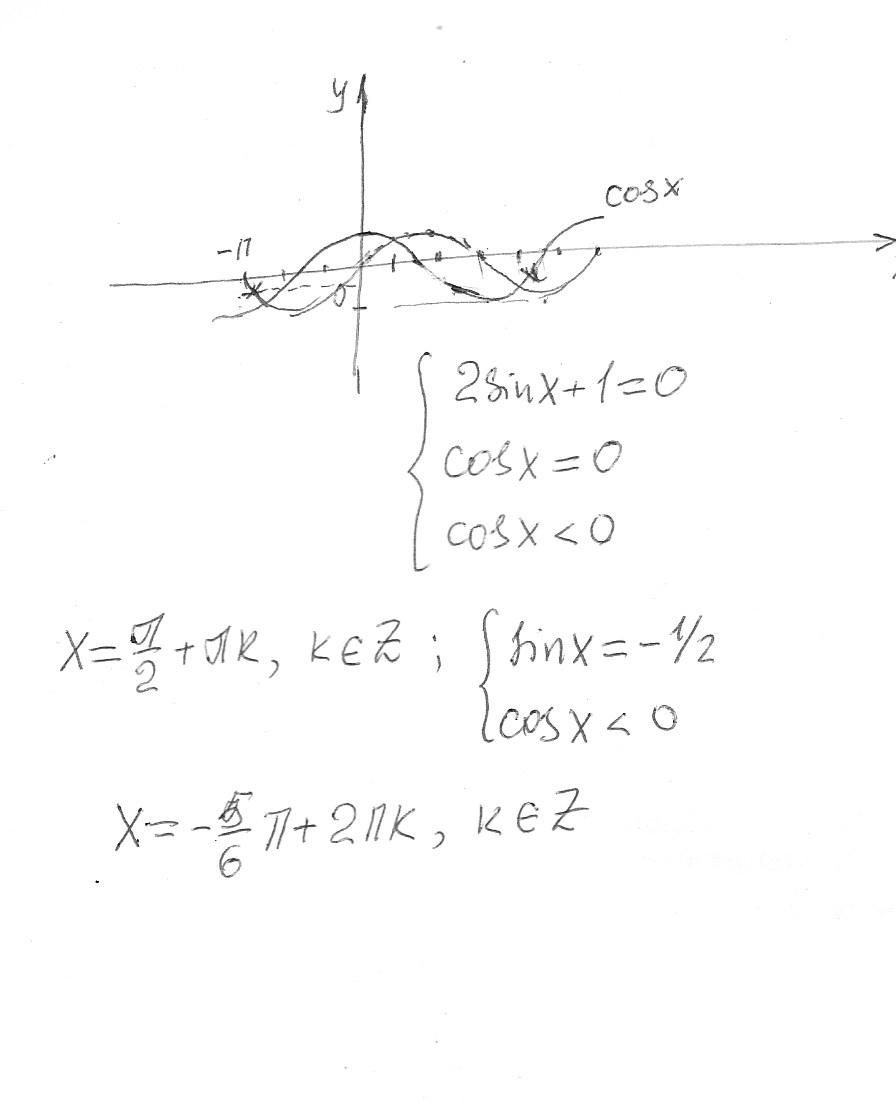 y
cosx
-π
0
2sinx+1=0
cosx=0
cosx<0
x=π/2+πk, k∈Z; { sinx=-1/2
cosx<0
x=-5/6 π+2πk, k∈Z